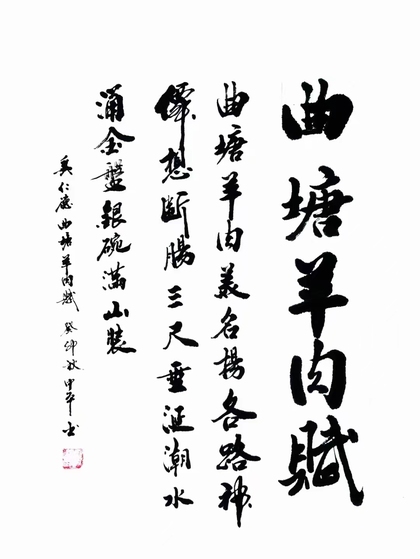 曲塘羊肉賦
曲塘羊肉美名揚各路神
僊想斷腸三尺垂涎潮水
涌金盤銀碗滿山裝
吳仁德曲塘羊肉賦 癸 甲平书